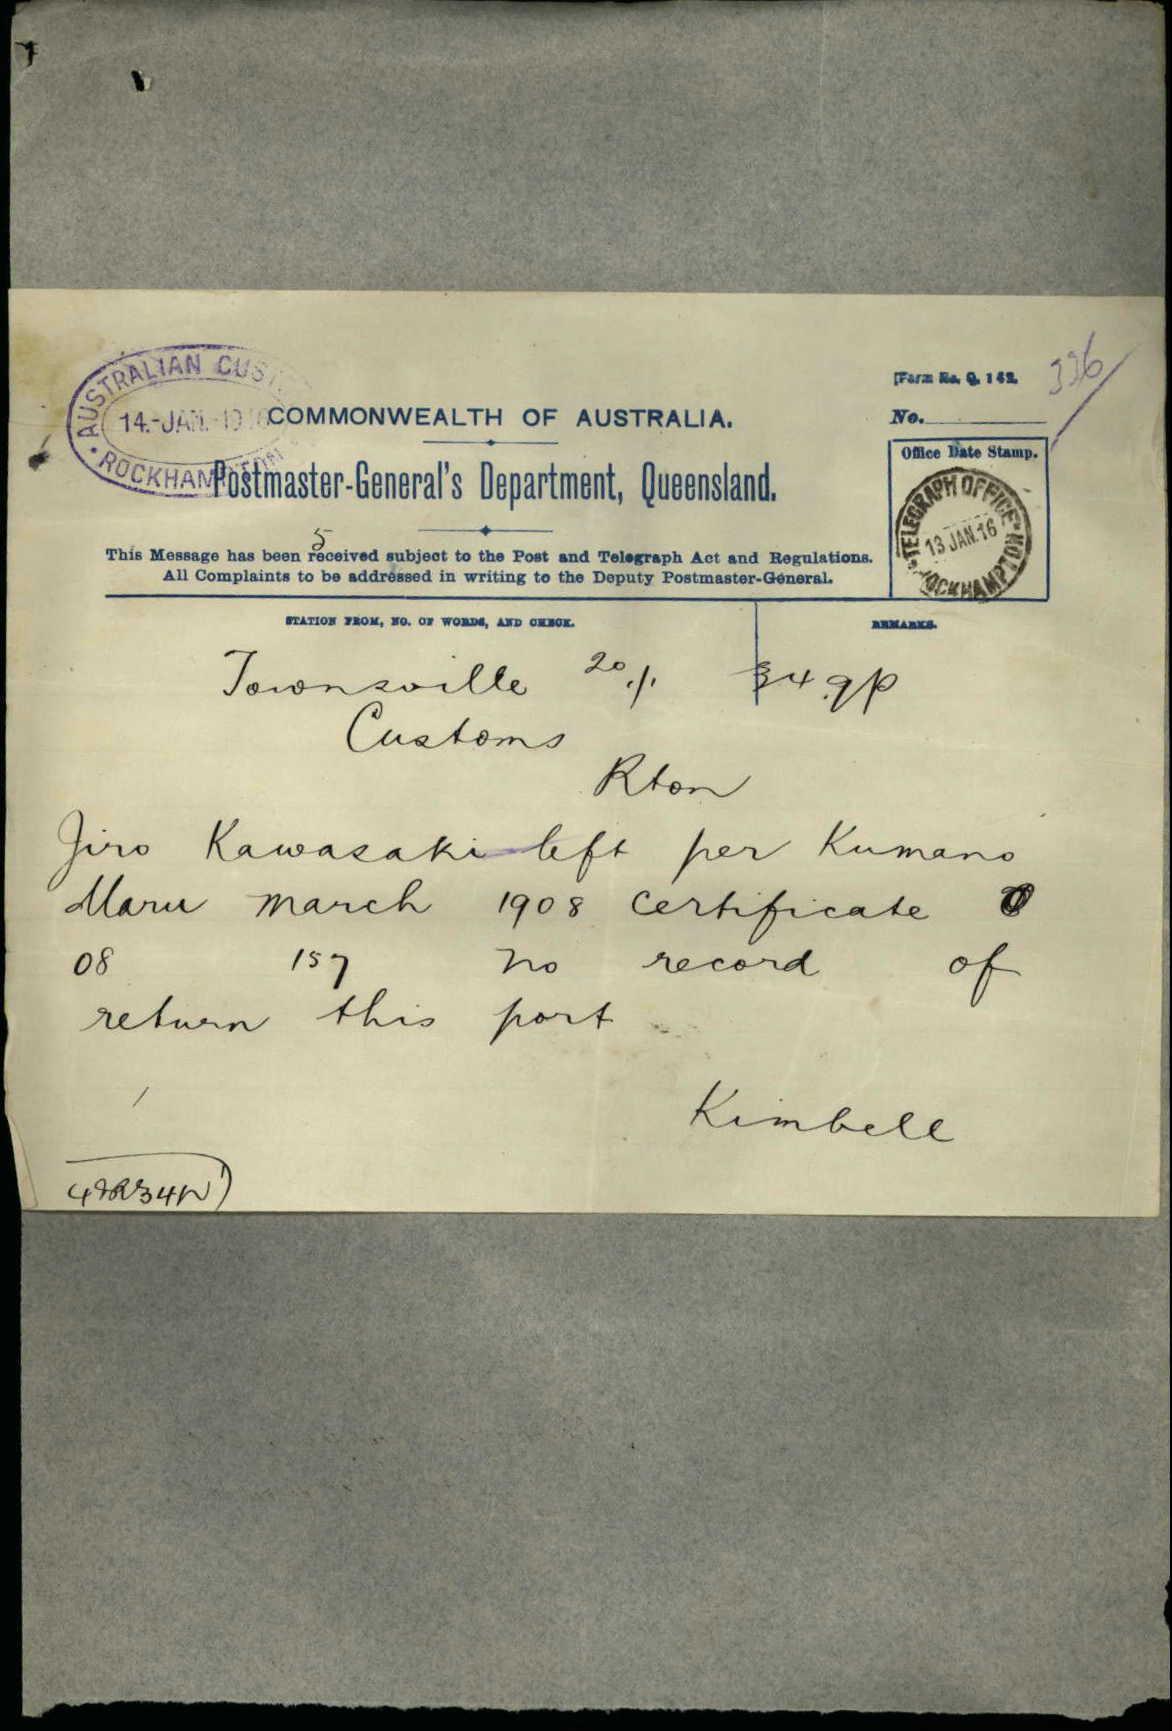 [Form No. Q. 142.
336/
AUSTRALIAN CUST
14.-JAN.-19
ROCKHAMPTON
COMMONWEALTH OF AUSTRALIA.
No.
Postmaster-General's Department, Queensland.
Office Date Stamp.
TELEGRAPH OFFICE
13 JAN.16
ROCKHAMPTON
5
This Message has been received subject to the Post and Telegraph Act and Regulations.
All Complaints to be addressed in writing to the Deputy Postmaster-General.
STATION FROM, NO. OF WORDS, AND CHECK.
REMARKS.
Townsville 20/1. 34 9p
Customs
Rton
Jiro Kawasaki left per Kumano
Maru march 1908 certificate
08 157 no record of
return this port
Kimbell